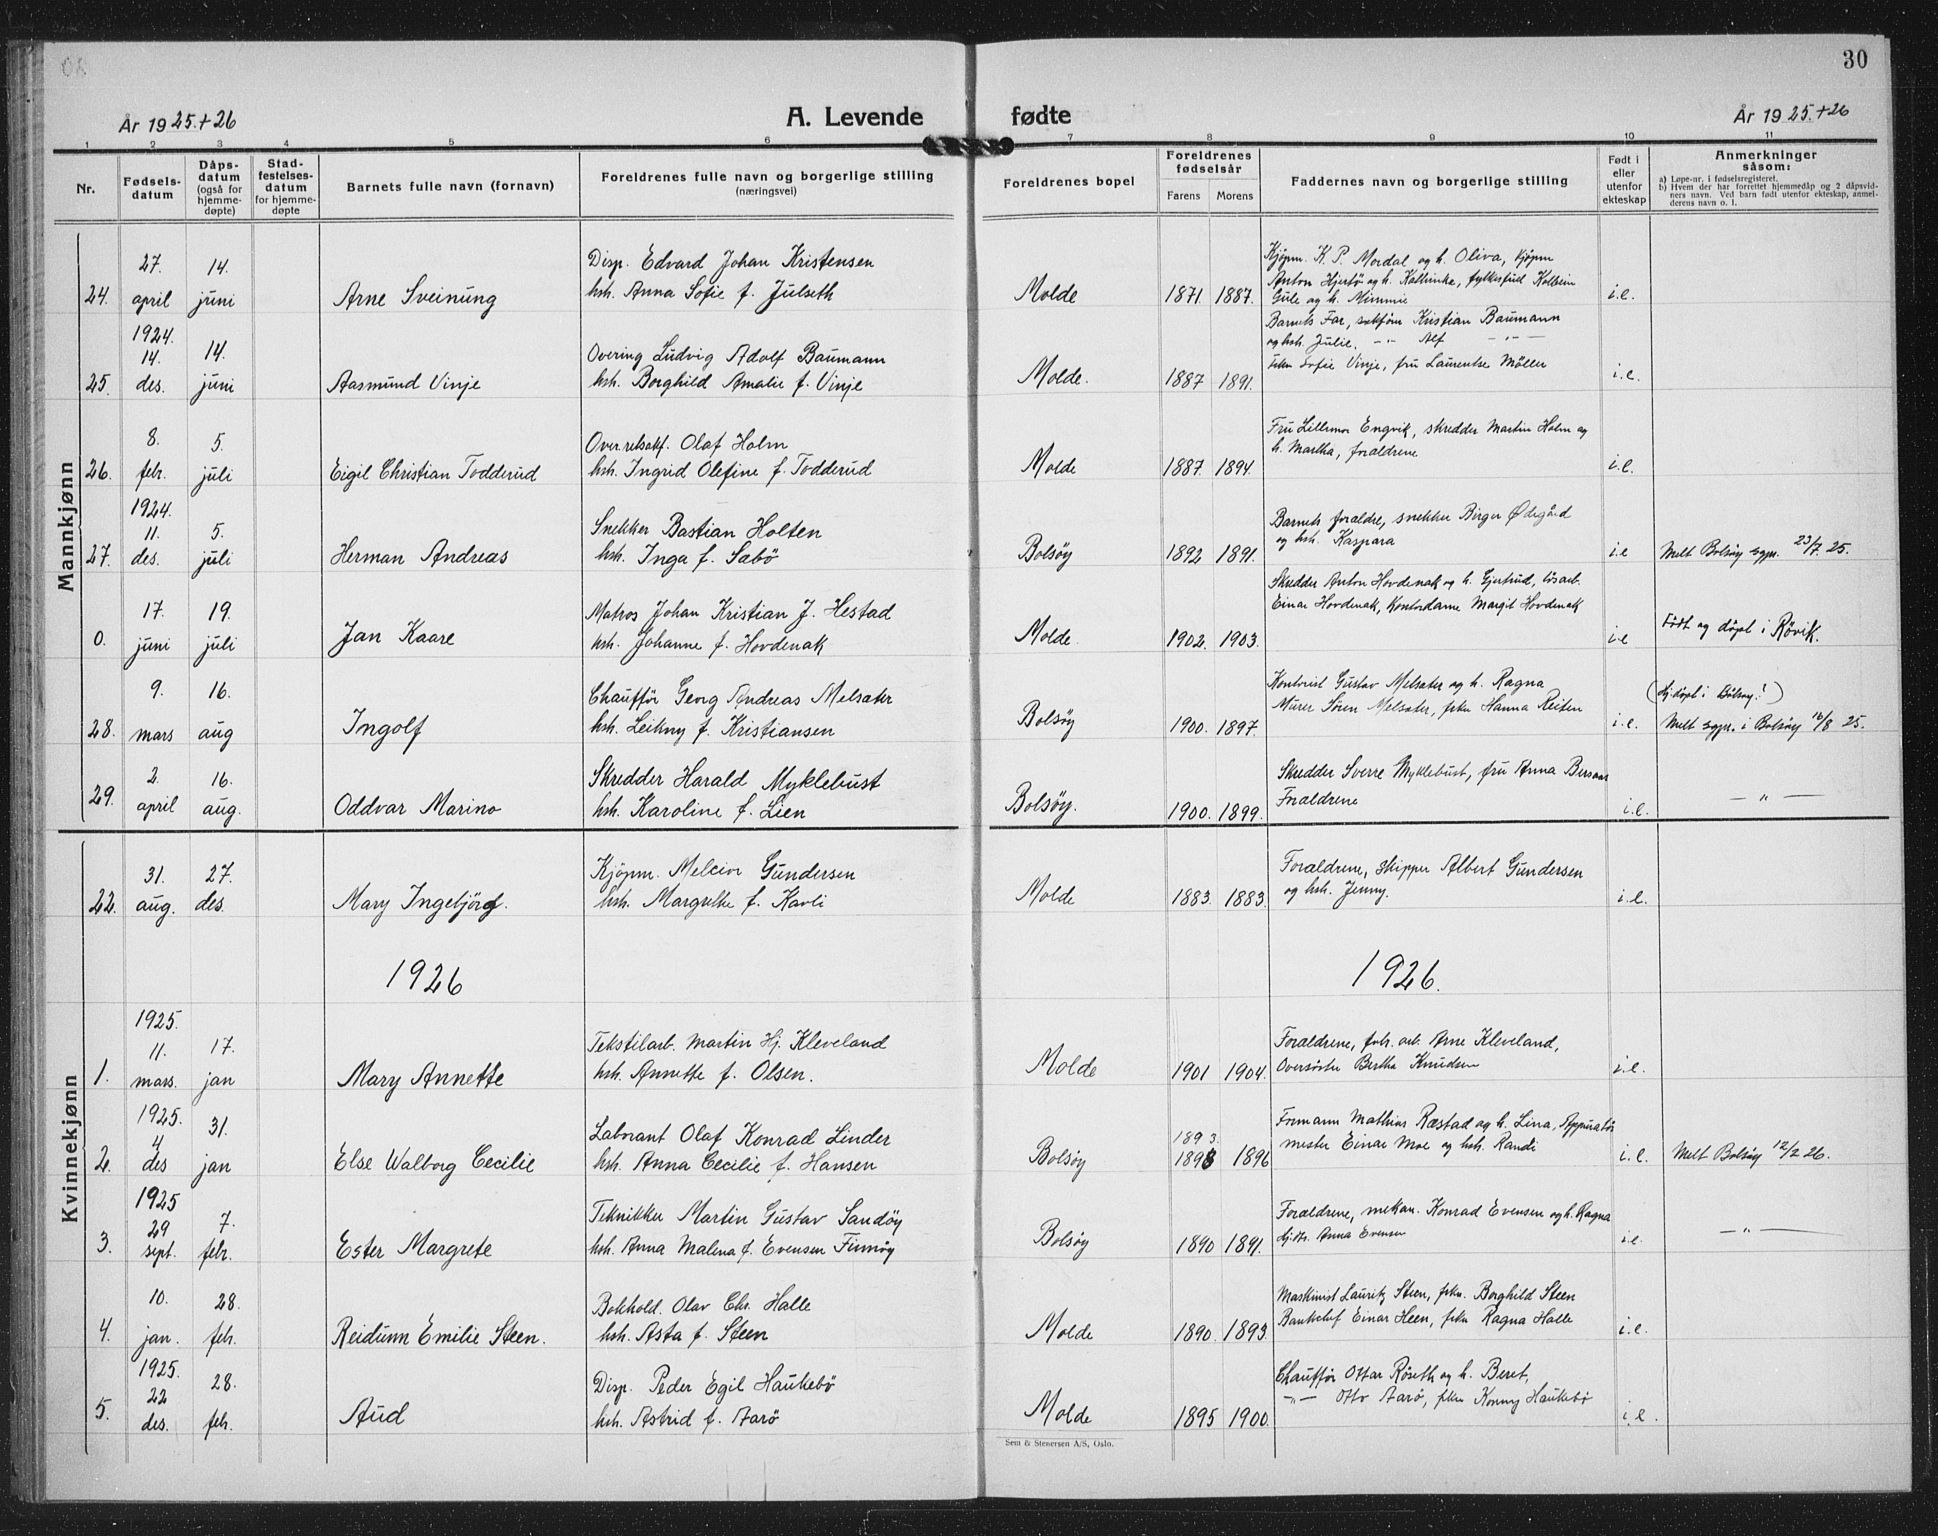 30
År 1925.+26
A. Levende fødte
År 1925.+26
1 2 3 4 5 6 7 8 9 10 11
Nr.
Fødsels-
datum
Dåps-
datum
(også for
hjemme-
døpte)
Stad-
festelses-
datum
for hjemme-
døpte
Barnets fulle navn (fornavn)
Foreldrenes fulle navn og borgerlige stilling
(næringsvei)
Foreldrenes bopel
Foreldrenes
fødselsår
Farens Morens
Faddernes navn og borgerlige stilling
Født i
eller
utenfor
ekteskap
Anmerkninger
såsom:
a) Løpe-nr. i fødselsregisteret.
b) Hvem der har forrettet hjemmedåp og 2 dåpsvid-
ners navn. Ved barn født utenfor ekteskap, anmel-
derens navn o. l.
Mannkjønn
24. 27. april 14. juni
Arne Sveinung
Disp. Edvard Johan Kristensen
hsh. Anna Sofie f. Julseth
Molde 1871. 1887.
Kjøpm. K. P. Mordal og h. Oliva, kjøpm
Anton Hjertø og h. Kathinka, fylkesfud Kolbein
Gule og h. Mimmie
i.e.
25. 1924. 14. des. 14. juni
Aasmund Vinje
Overing Ludvig Adolf Baumann
hsh. Borghild Amalie f. Vinje
Molde. 1887 1891.
Barnets Far, Kristian Baumann
og hsh. Julie, -"- Alf -"-
frkn Sofie Vinje, fru Laurentse Møller
i.e.
26. 8. febr. 5. juli
Eigil Christian Todderud
Overretssakf. Olaf Holm
hsh. Ingrid Olefine f. Todderud
Molde 1887. 1894.
Fru Lillemor Engvik, skredder Martin Holm og
h. Martha, foraldrene
i.e.
27. 1924. 11. des. 5. juli
Herman Andreas
Snekker Bastian Holten
hsh. Inga f. Sabø
Bolsøy 1892 1891.
Barnets foraldre, snekker Birger Ødegård
og hsh. Kaspara
i.e
Melt Bolsøy sgpr. 23/7 25.
0. 17. juni 19. juli
Jan Kaare
Matros Johan Kristian J. Hestad
hsh. Johanne f. Hovdenak
Molde. 1902. 1903.
Skredder Anton Hovdenak og h. Gjertrud, løsarb.
Einar Hovdenak, Kontordame Margit Hovdenak
i.e
Født og døpt i Røvik.
28. 9. mars 16. aug
Ingolf
Chauffør Georg Andreas Melsæter
hsh. Leikny f. Kristiansen
Bolsøy 1900. 1897.
Kontorist Gustav Melsæter og h. Ragna
Murer Søren Melsæter, frkn Hanna Reiten
i.e.
(Hj.døpt i Bolsøy!)
Melt sgpr. i Bolsøy 16/8 25.
29. 2. april 16. aug.
Oddvar Marino
Skredder Harald Myklebust
hsh. Karoline f. Lien
Bolsøy. 1900. 1899.
Skredder Sverre Myklebust, fru Anna Bersaas
Foraldrene
i.e.
— " —
Kvinnekjønn
22. 31. aug. 27. des.
Mary Ingebjörg.
Kjøpm. Melcior Gundersen
hsh. Margrethe f. Kavli
Molde 1883. 1883.
Foraldrene, skipper Albert Gundersen
og hsh. Jenny.
i.e.
1926
1926.
1. 1925. 11. mars. 17. jan
Mary Annette
Tekstilarb. Martin Hj. Kleveland
hsh. Annette f. Olsen.
Molde 1901 1904.
Foraldrene, fabr. arb. Arne Kleveland,
Oversøster Bertha Knudsen
i.e.
2. 1925. 4 des 31. jan
Else Walborg Cecilie
Laborant Olaf Konrad Linder
hsh. Anna Cecilie f. Hansen
Bolsøy 1893. 1898 1896
Formann Mathias Ræstad og h. Lina, Apparat-
mester Einar Moe og hsh. Randi
i.e.
Melt Bolsøy 12/2 26.
3. 1925 29 sept. 7. febr.
Ester Margrete
Teknikker Martin Gustav Sandøy
hsh. Anna Malena f. Evensen Finnøy
Bolsøy 1890 1891.
Foraldrene, mekan. Konrad Evensen og h. Ragna
Anna Evensen
i.e.
— " —
4. 10. jan. 28. feb.
Reidunn Emilie Steen.
Bokhold. Olav Chr. Halle
hsh. Asta f. Steen
Molde 1890. 1893.
Maskinist Lauritz Steen, frkn. Borghild Steen
Banksjef Einar Heen, frkn Ragna Halle
i.e.
5. 1925. 22 des. 28. feb.
Aud
Disp. Peder Egil Haukebø
hsh. Astrid f. Aarø
Molde 1895 1900.
Chauffør Ottar Røseth og h. Beret,
-"- Otto Aarø, frkn Konny Haukebø
i.e.
Sem & Stenersen A/S, Oslo.